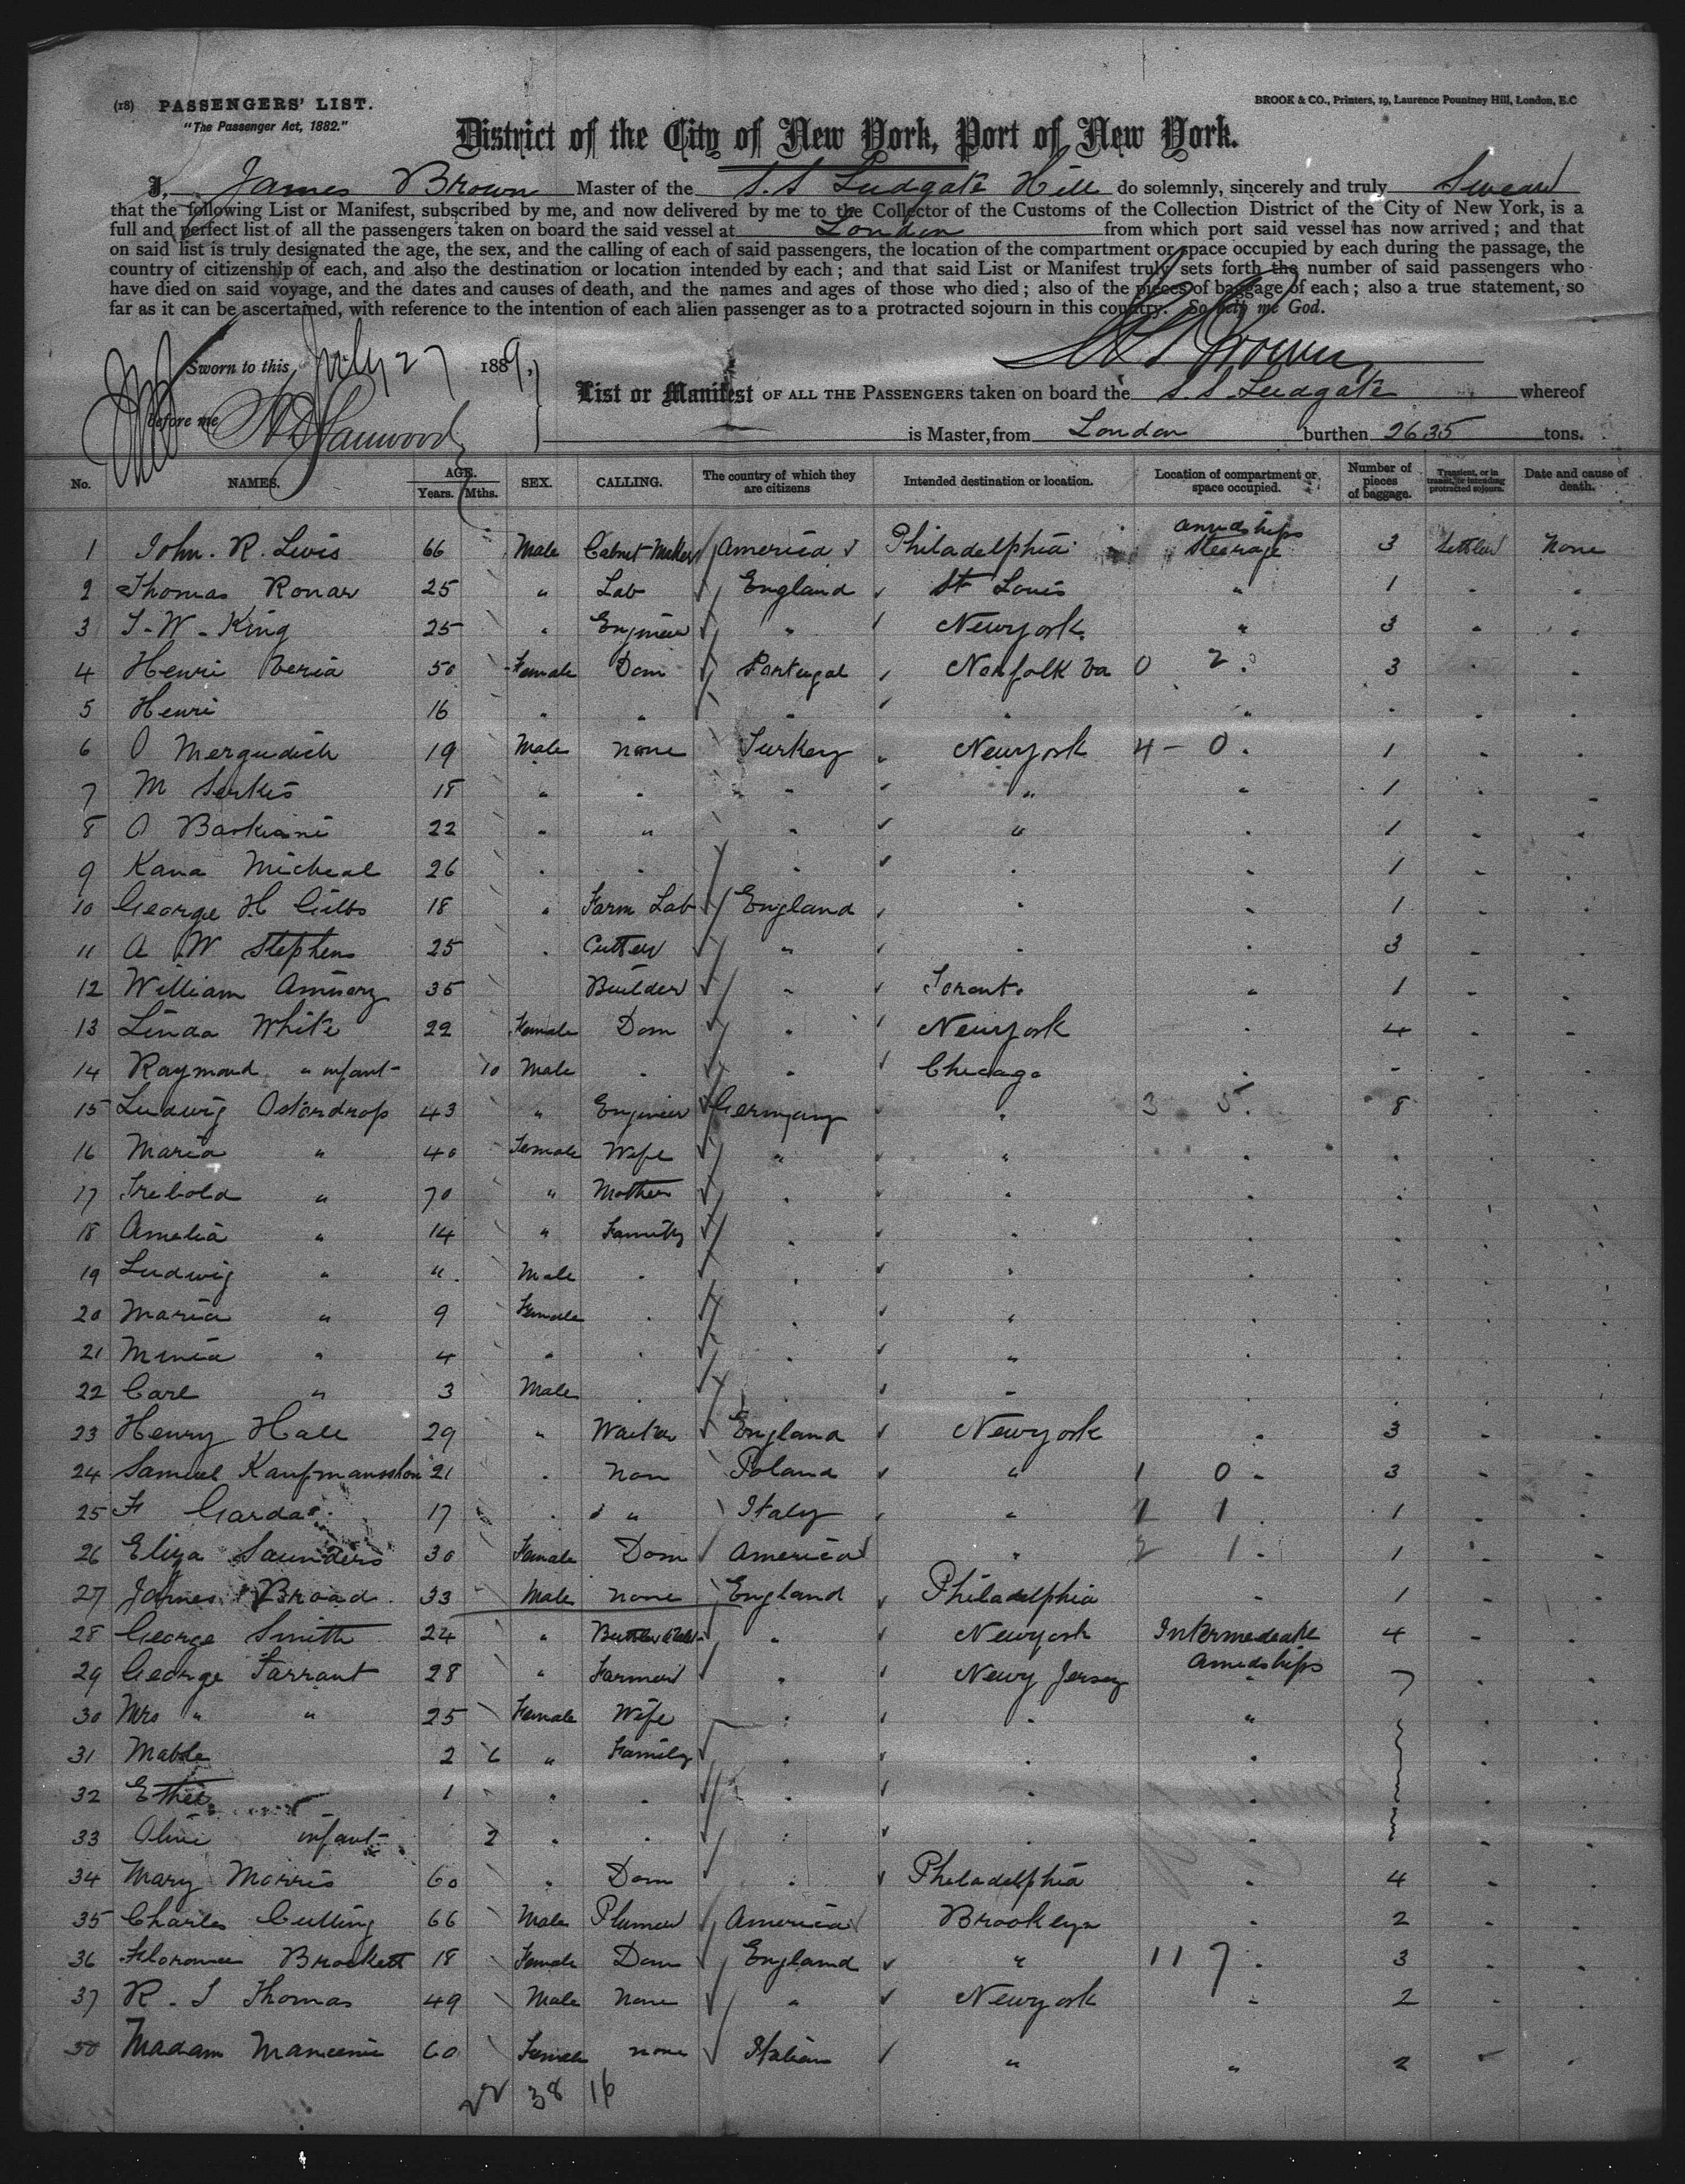 (18) PASSENGERS' LIST.
"The Passenger Act, 1882."
BROOK & CO., Printers, 19, Laurence Pountney Hill, London, E.C
District of the City of New York, Port of New York.
I, James Brown Master of the S.S Ludgate Hill do solemnly, sincerely and truly Swear
that the following List or Manifest, subscribed by me, and now delivered by me to the Collector of the Customs of the Collection District of the City of New York, is a
full and perfect list of all the passengers taken on board the said vessel at London from which port said vessel has now arrived; and that
on said list is truly designated the age, the sex, and the calling of each of said passengers, the location of the compartment or space occupied by each during the passage, the
country of citizenship of each, and also the destination or location intended by each; and that said List or Manifest truly sets forth the number of said passengers who
have died on said voyage, and the dates and causes of death, and the names and ages of those who died; also of the pieces of baggage of each; also a true statement, so
far as it can be ascertained, with reference to the intention of each alien passenger as to a protracted sojourn in this country. So help me God.
Sworn to this July 27 1889,
Brown
before me
List or Manifest OF ALL THE PASSENGERS taken on board the S.S. Ludgate whereof
is Master, from London burthen 2635 tons.
No. NAMES. AGE. Years. Mths. SEX. CALLING. The country of which they are citizens Intended destination or location. Location of compartment or space occupied. Number of pieces of baggage. Transient, or in transit, or intending protracted sojourn. Date and cause of death.
1 John. R. Lewis 66 Male Cabnet Maker America Philadelphia amidships Stearage 3 Settler None
2 Thomas Ronar 25 " Lab England St Louis " 1
3 T. W. King 25 " Engineer " Newyork " 3
4 Henri Veria 50 Female Dom Portugal Norfolk Va 0 2 3
5 Henri 16 " " " " "
6 O Mergudich 19 Male none Turkey Newyork 4 - 0 1
7 M Serkis 18 " " " " " 1
8 O Barkiani 22 " " " " " 1
9 Kana Micheal 26 " " " " " 1
10 George H Gibbs 18 " Farm Lab England " " 1
11 A W Stephens 25 " Cutter " " " 3
12 William 35 Builder " Toronto " 1
13 Linda White 22 Female Dom " Newyork 4
14 Raymond " infant 10 Male " " Chicago "
15 Ludwig Ostordrop 43 " Engineer Germany " 3 5 8
16 Maria " 40 Female Wife " " "
17 " 70 " Mother " " "
18 Amelia " 14 " Family " " "
19 Ludwig " " Male " " " "
20 Maria " 9 Female " " "
21 Minia " 4 " " " "
22 Carl " 3 Male " " "
23 Henry Hale 29 " Waiter England Newyork " 3
24 Samuel Kaufmansshon 21 " Non Poland " 1 0 3
25 F Gardas 17 " " Italy " 1 1 1
26 Eliza Saunders 30 Female Dom America " 2 1 1
27 James Broad 33 Male none England Philadelphia " 1
28 George Smith 24 " " Newyork Intermedeate Amidships 4
29 George Farrant 28 " Farmer " Newy Jersey " 7
30 Mrs " " 25 Female Wife " " "
31 Mable 2 6 " Family " " "
32 Ethel 1 " " " " "
33 infant 2 " " " " "
34 Mary Morris 60 " Dom " Philadelphia " 4
35 Charles Cutting 66 Male Plumer America Brooklyn " 2
36 Florence Brockett 18 Female Dom England " 11 7 3
37 R. S Thomas 49 Male None " Newyork " 2
Madam Mancini 60 Female none Italian " " 2
38 16